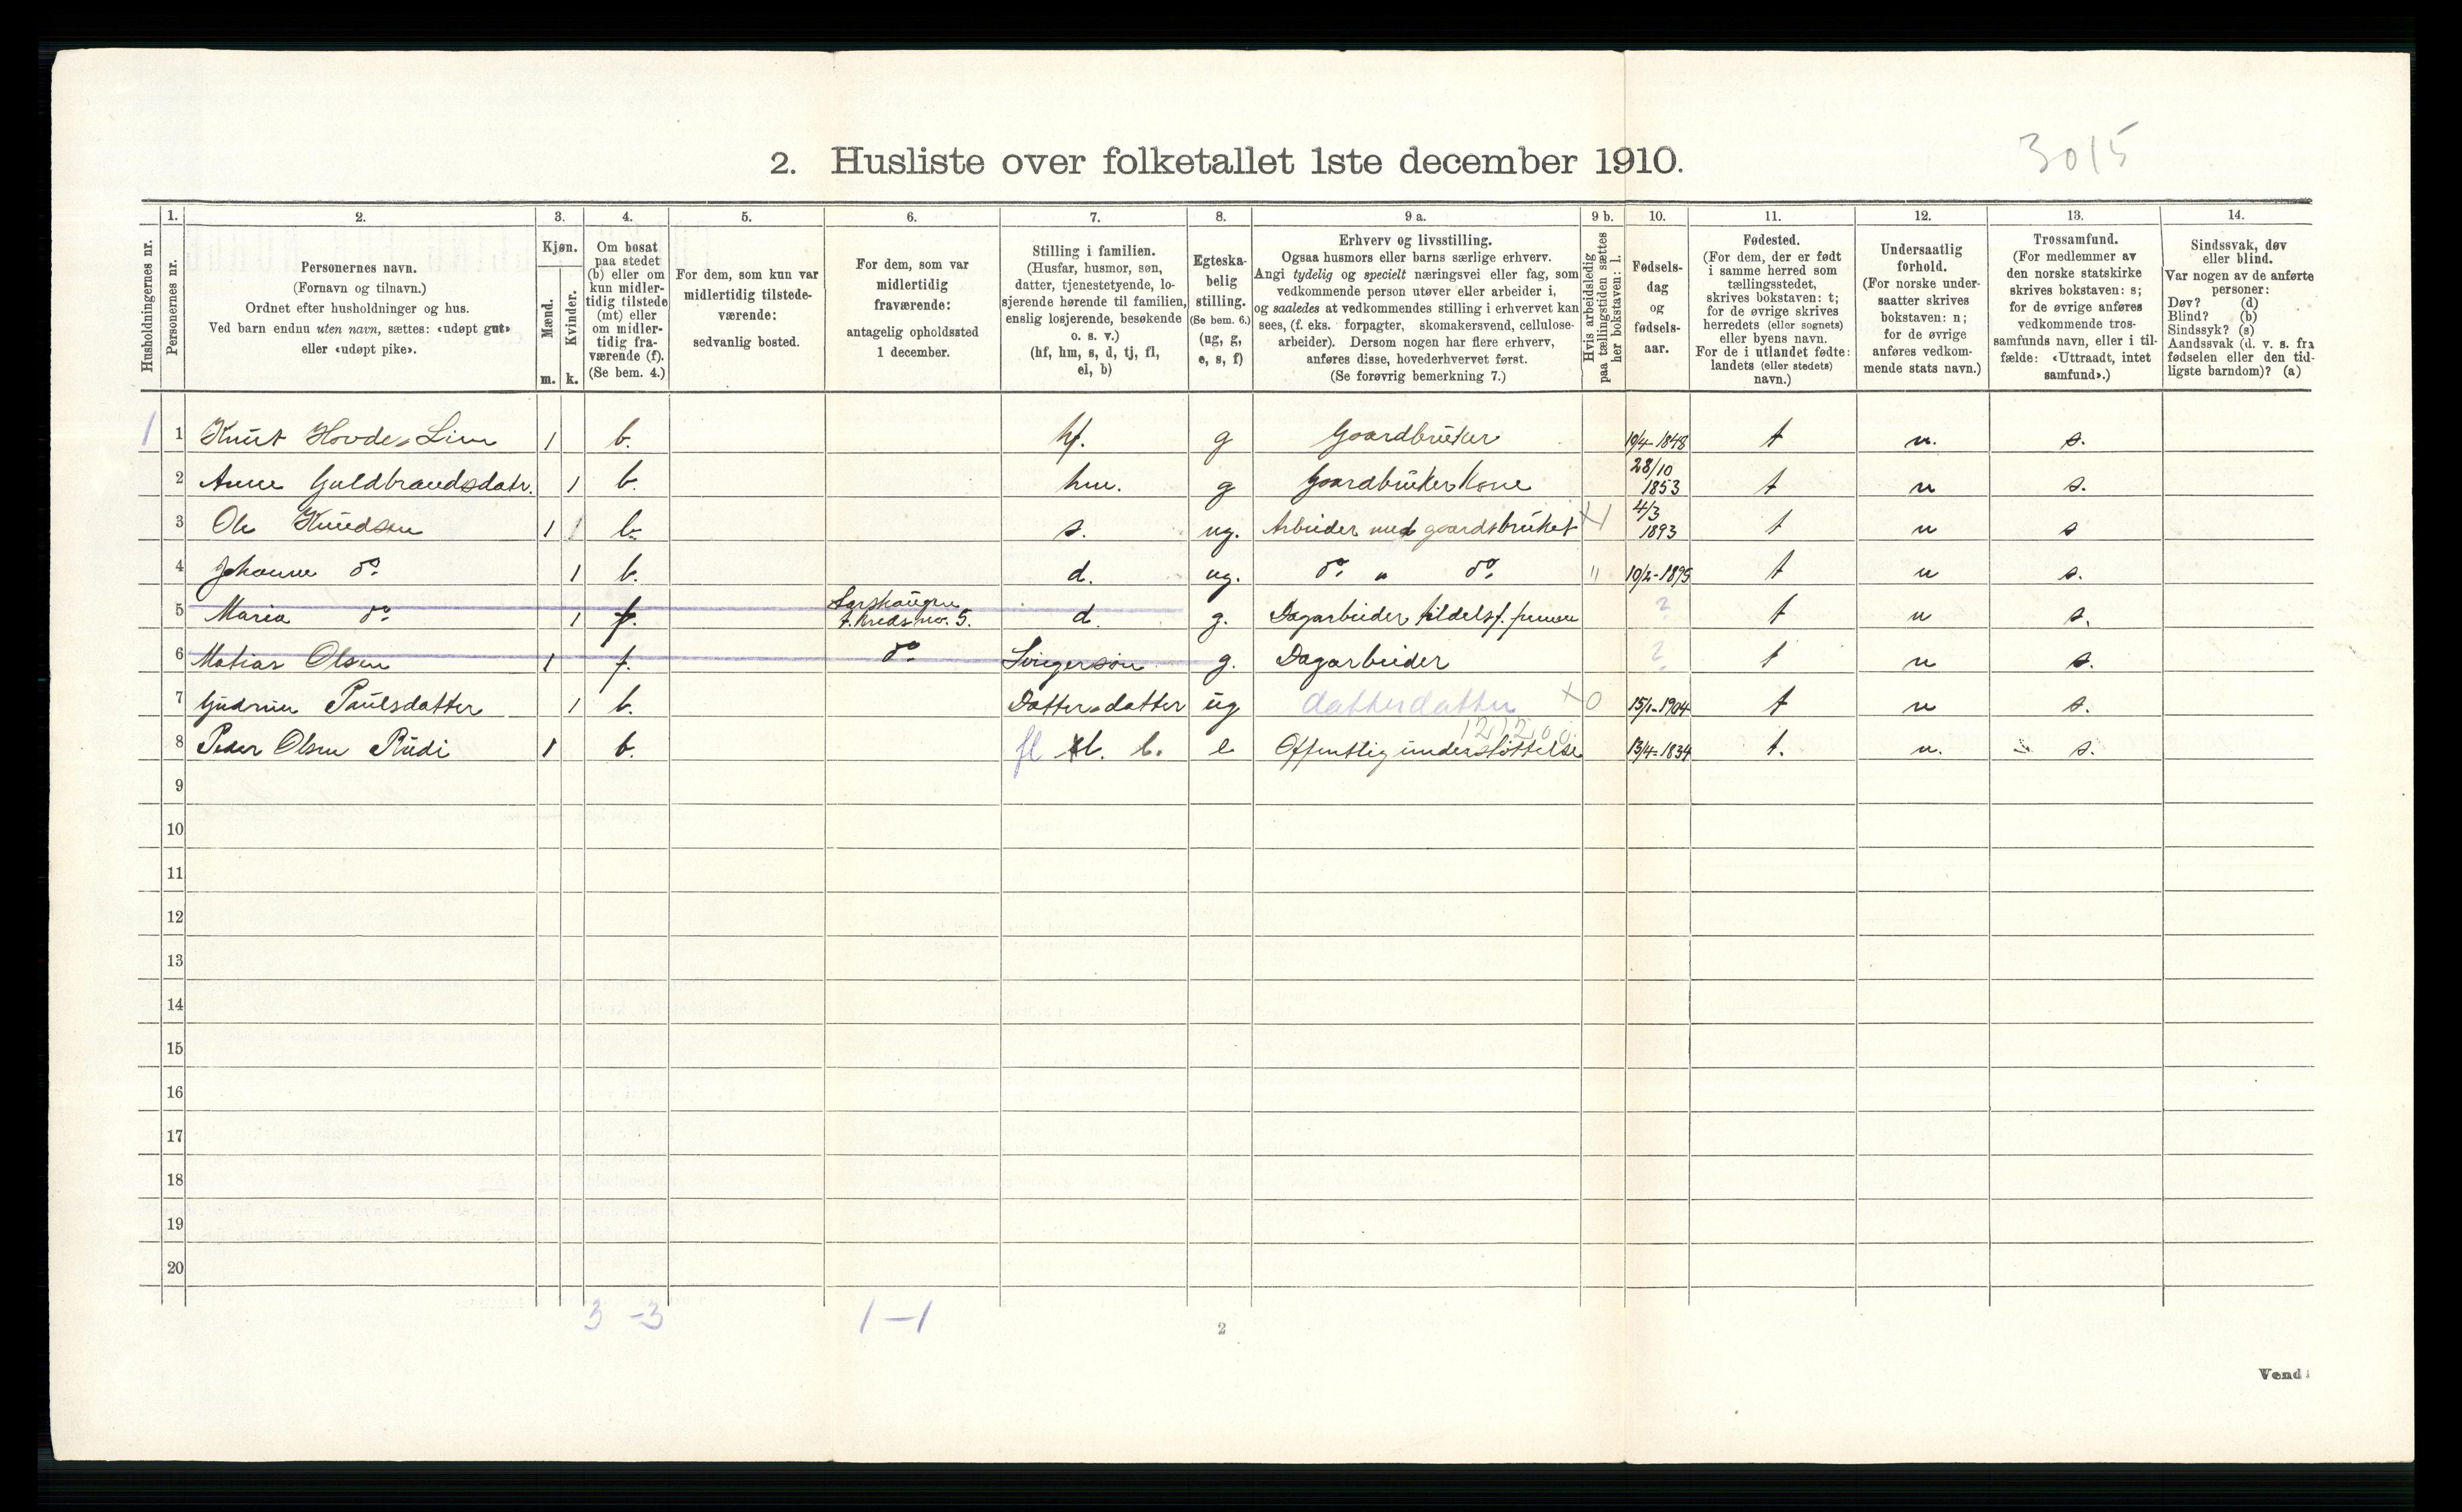 3015
2. Husliste over folketallet 1ste december 1910.
Husholdningernes nr.
1. Personernes nr.
2. Personernes navn. (Fornavn og tilnavn.) Ordnet efter husholdninger og hus. Ved barn endnu uten navn, sættes: «udøpt gut» eller «udøpt pike».
3. Kjøn. Mænd. m. Kvinder. k.
4. Om bosat paa stedet (b) eller om kun midlertidig tilstede (mt) eller om midlertidig fraværende (f). (Se bem. 4.)
5. For dem, som kun var midlertidig tilstedeværende: sedvanlig bosted.
6. For dem, som var midlertidig fraværende: antagelig opholdssted 1 december.
7. Stilling i familien. (Husfar, husmor, søn, datter, tjenestetyende, losjerende hørende til familien, enslig losjerende, besøkende o. s. v.) (hf, hm, s, d, tj, fl, el, b)
8. Egteskabelig stilling. (Se bem. 6.) (ug, g, e, s, f)
9 a. Erhverv og livsstilling. Ogsaa husmors eller barns særlige erhverv. Angi tydelig og specielt næringsvei eller fag, som vedkommende person utøver eller arbeider i, og saaledes at vedkommendes stilling i erhvervet kan sees, (f. eks. forpagter, skomakersvend, cellulosearbeider). Dersom nogen har flere erhverv, anføres disse, hovederhvervet først. (Se forøvrig bemerkning 7.)
9 b. Hvis arbeidsledig paa tællingstiden sættes her bokstaven: l.
10. Fødselsdag og fødselsaar.
11. Fødested. (For dem, der er født i samme herred som tællingsstedet, skrives bokstaven: t; for de øvrige skrives herredets (eller sognets) eller byens navn. For de i utlandet fødte: landets (eller stedets) navn.)
12. Undersaatlig forhold. (For norske undersaatter skrives bokstaven: n; for de øvrige anføres vedkommende stats navn.)
13. Trossamfund. (For medlemmer av den norske statskirke skrives bokstaven: s; for de øvrige anføres vedkommende trossamfunds navn, eller i tilfælde: «Uttraadt, intet samfund».)
14. Sindssvak, døv eller blind. Var nogen av de anførte personer: Døv? (d) Blind? (b) Sindssyk? (s) Aandssvak (d. v. s. fra fødselen eller den tidligste barndom)? (a)
1 1 Knut Hovde, Lien 1 b. hf. g Gaardbruker 19/4-1848 t n. s.
2 Anne Guldbrandsdatr. 1 b. hm. g Gaardbrukerkone 28/10 1853 t n s.
3 Ole Knudsen 1 b. s. ug. Arbeider med gaardsbruket 4/3 1893 t n s
4 Johanne do 1 b. d. ug. do " do " 10/2-1895 t n s.
5 Maria do 1 f. f. Kreds no. 5. d. g. Dagarbeider tildels f. ? t n s.
6 Matias Olsen 1 f. do Svigersøn g. Dagarbeider ? t n s.
7 Gudrun Paulsdatter 1 b. Datters datter ug datterdatter x0 15/1-1904 t n s.
8 Peder Olsen Rudi 1 b. fl b. e Offentlig understøttelse 13/4-1834 t. n. s.
9
10
11
12
13
14
15
16
17
18
19
20
3 -3 1-1
2
Vend!